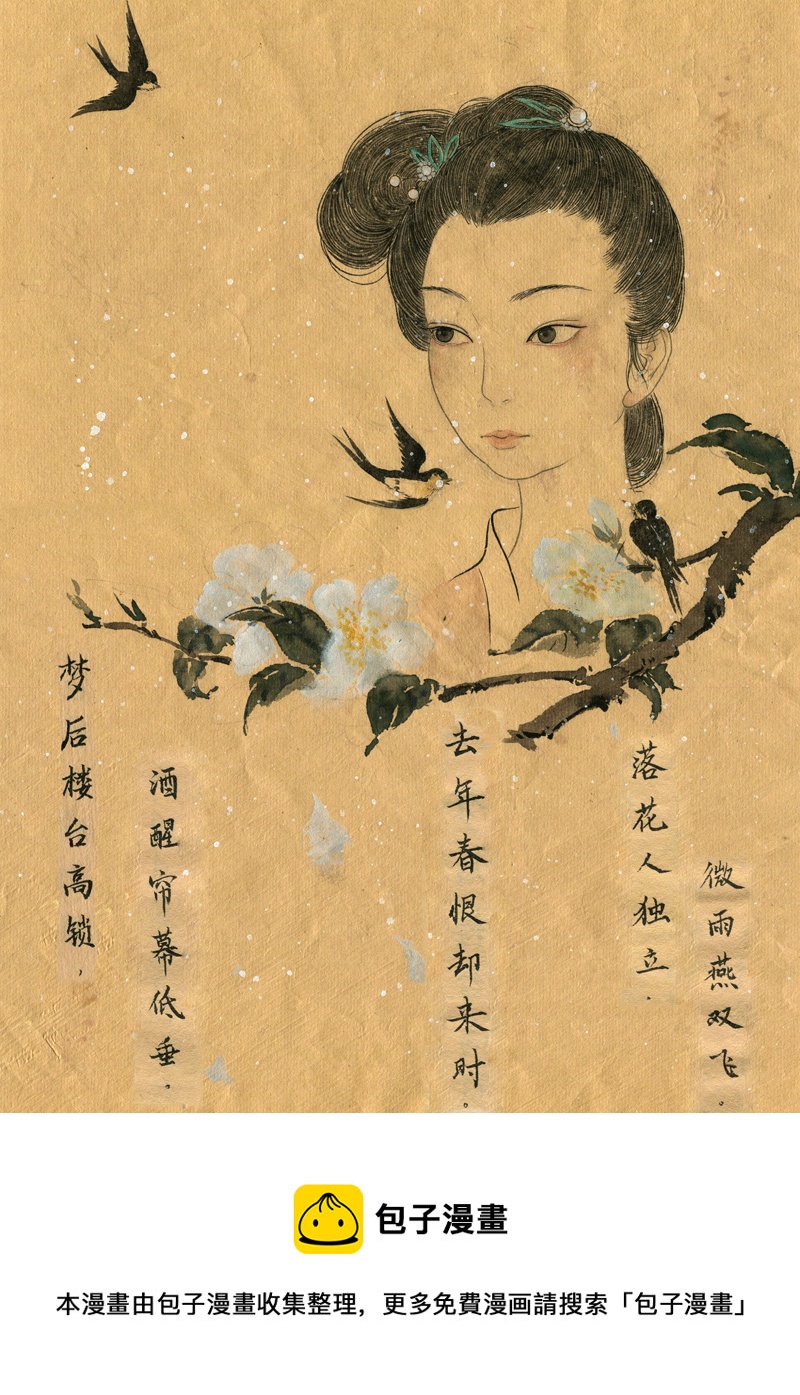 梦后楼台高锁，
酒醒帘幕低垂。
去年春恨却来时。
落花人独立，
微雨燕双飞。
包子漫畫
本漫畫由包子漫畫收集整理，更多免費漫画請搜索「包子漫畫」